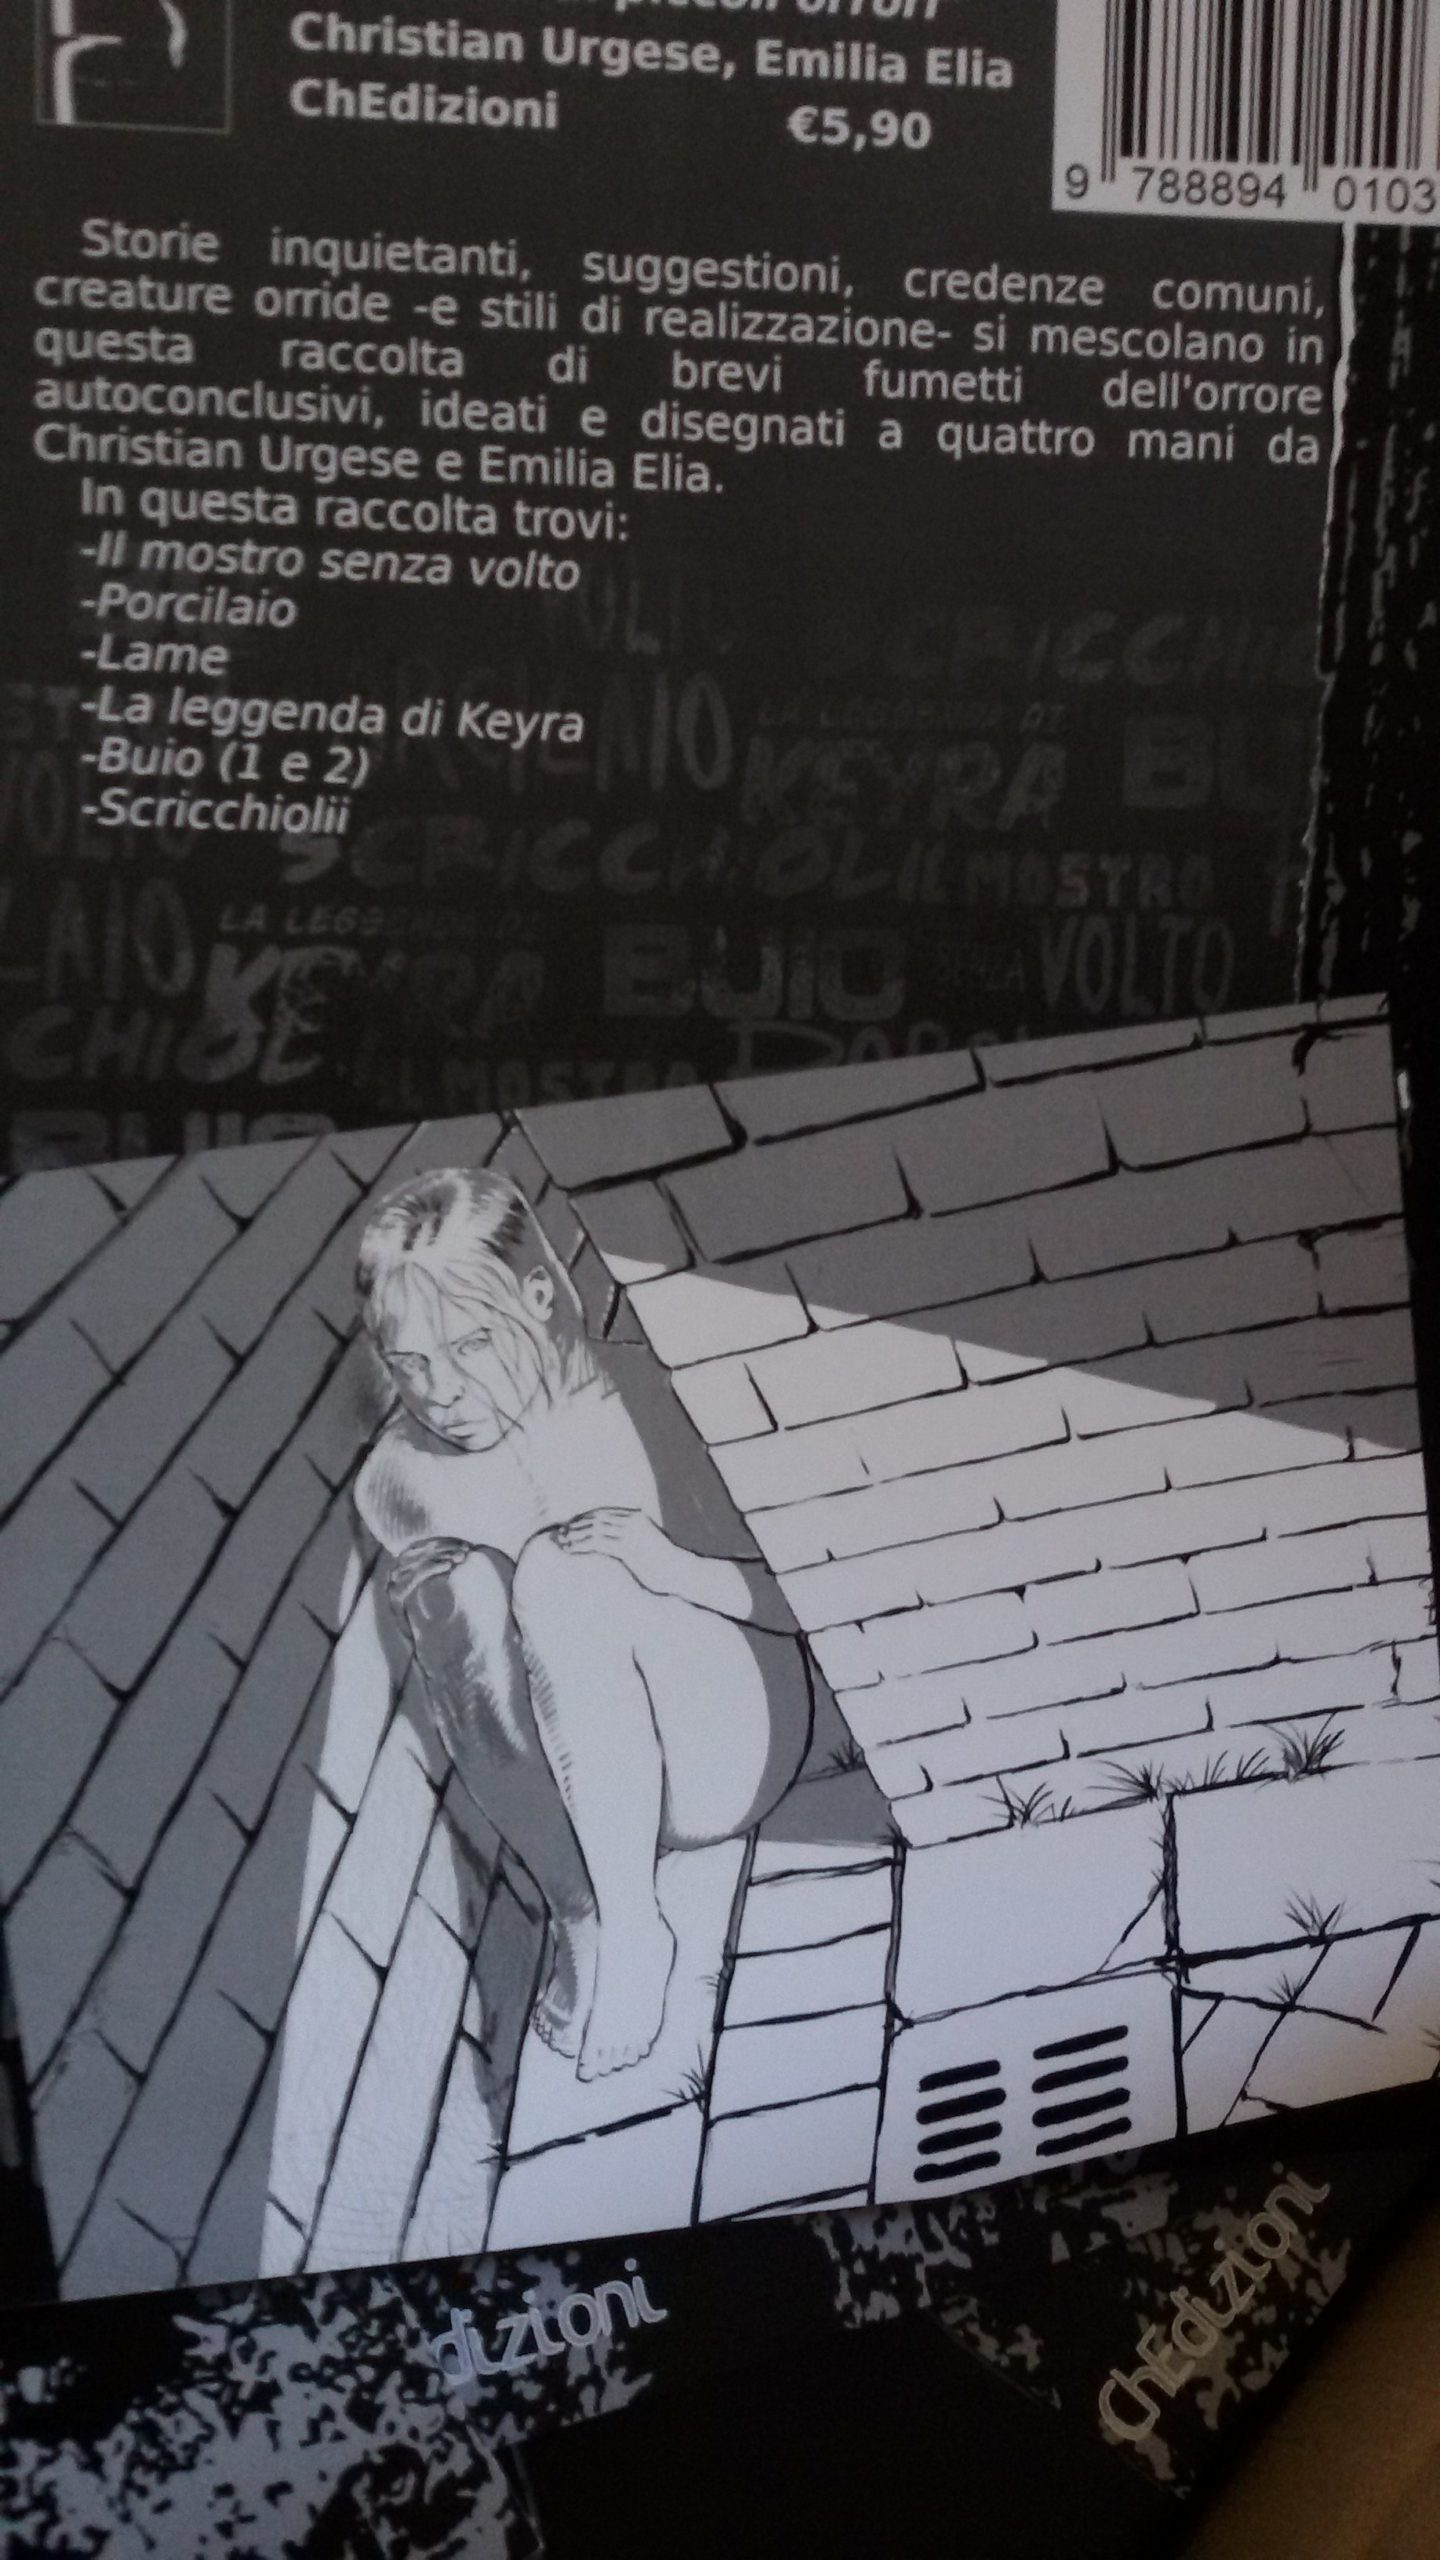 piccoli orrori
Christian Urgese, Emilia Elia
ChEdizioni €5,90
9 788894 0103
Storie inquietanti, suggestioni, credenze comuni,
creature orride -e stili di realizzazione- si mescolano in
questa raccolta di brevi fumetti dell'orrore
autoconclusivi, ideati e disegnati a quattro mani da
Christian Urgese e Emilia Elia.
In questa raccolta trovi:
-Il mostro senza volto
-Porcilaio
-Lame
-La leggenda di Keyra
-Buio (1 e 2)
-Scricchiolii
LA LEGGENDA DI
KEYRA
SCRICCHIOLII
IL MOSTRO
LA LEGGENDA DI
KEYRA
BUIO
SENZA VOLTO
IL MOSTRO
dizioni
ChEdizioni